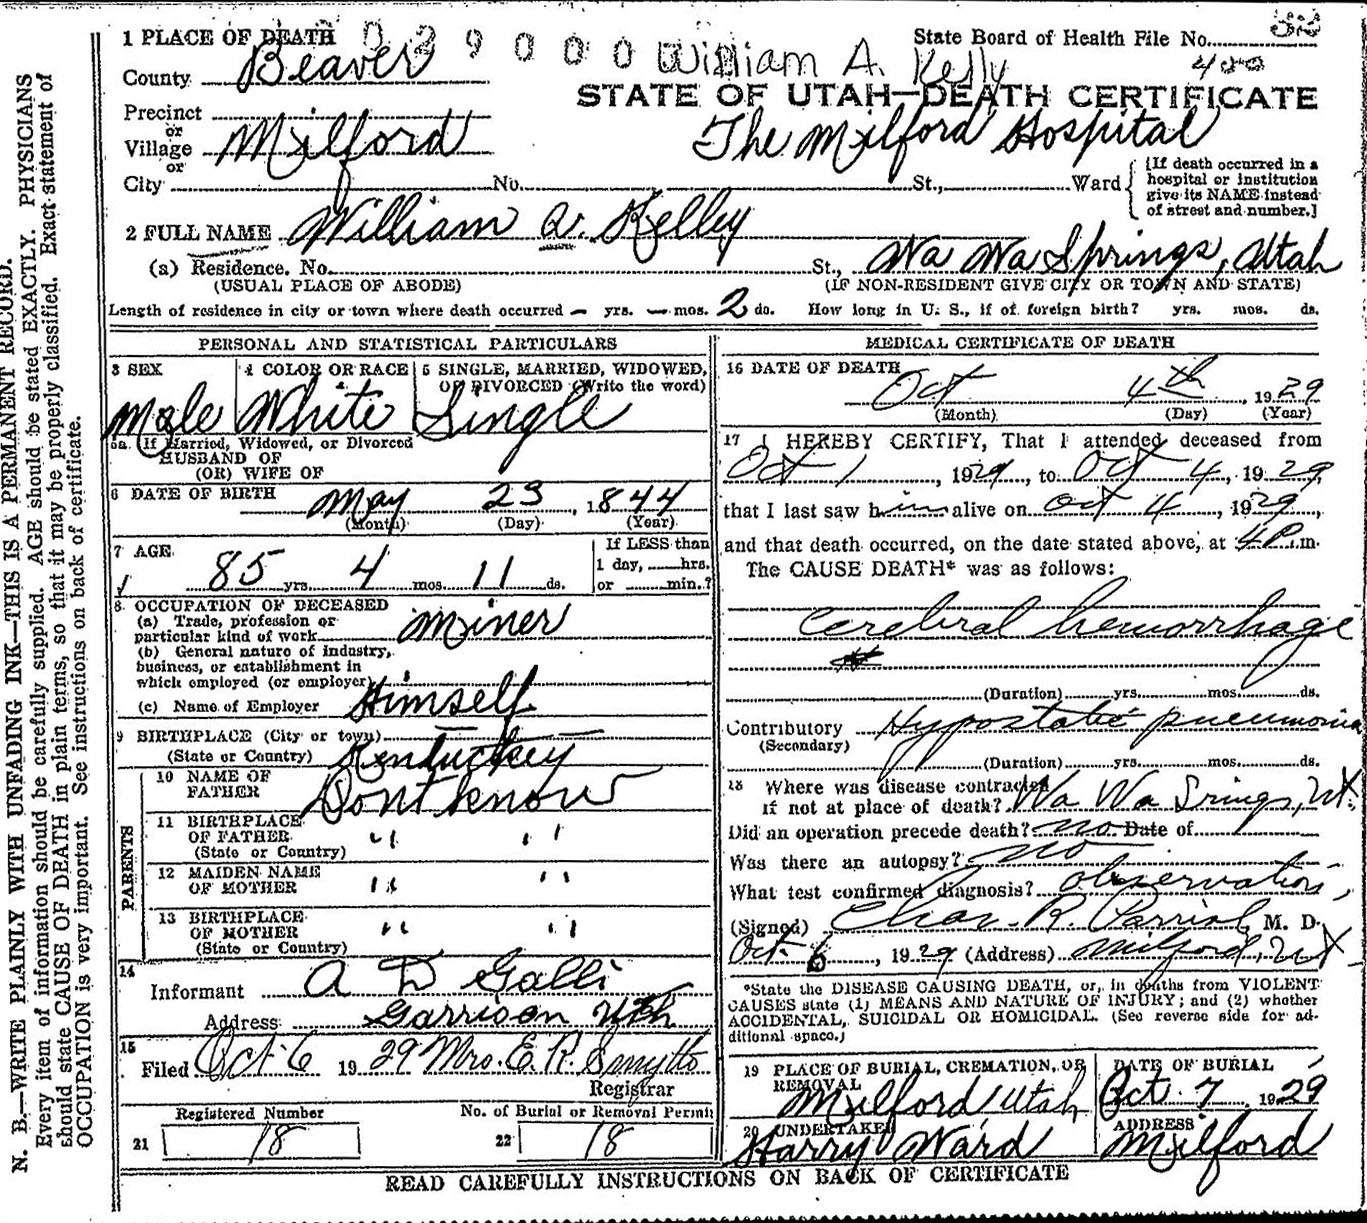 1 PLACE OF DEATH 029000 William A. Kelly State Board of Health File No. 52
County Beaver 400
STATE OF UTAH—DEATH CERTIFICATE
Precinct
or
Village Milford The Milford Hospital
or
City No. St., Ward {[If death occurred in a hospital or institution give its NAME instead of street and number.]
2 FULL NAME William A. Kelley
(a) Residence. No. St., Wa Wa Springs, Utah
(USUAL PLACE OF ABODE) (IF NON-RESIDENT GIVE CITY OR TOWN AND STATE)
Length of residence in city or town where death occurred — yrs. — mos. 2 ds. How long in U. S., if of foreign birth? yrs. mos. ds.
PERSONAL AND STATISTICAL PARTICULARS
3 SEX 4 COLOR OR RACE 5 SINGLE, MARRIED, WIDOWED,
OR DIVORCED (Write the word)
Male White Single
5a. If Married, Widowed, or Divorced
HUSBAND OF
(OR) WIFE OF
6 DATE OF BIRTH May 23, 1844
(Month) (Day) (Year)
7 AGE If LESS than
85 yrs. 4 mos. 11 ds. 1 day, hrs.
or min.?
8. OCCUPATION OF DECEASED
(a) Trade, profession or
particular kind of work Miner
(b) General nature of industry,
business, or establishment in
which employed (or employer)
(c) Name of Employer Himself
9 BIRTHPLACE (City or town)
(State or Country) Kentuckey
PARENTS
10 NAME OF
FATHER Dont know
11 BIRTHPLACE
OF FATHER " "
(State or Country)
12 MAIDEN NAME
OF MOTHER " "
13 BIRTHPLACE
OF MOTHER " "
(State or Country)
14
Informant A D Galli
Address Garrison Utah
15
Filed Oct 6 1929 Mrs. E. R. Smyth
Registrar
Registered Number No. of Burial or Removal Permit
21 18 22 18
MEDICAL CERTIFICATE OF DEATH
16 DATE OF DEATH
Oct 4th, 1929
(Month) (Day) (Year)
17 I HEREBY CERTIFY, That I attended deceased from
Oct 1, 1929, to Oct 4, 1929,
that I last saw him alive on Oct 4, 1929,
and that death occurred, on the date stated above, at 4P.m.
The CAUSE DEATH* was as follows:
Cerebral hemorrhage
(Duration) yrs. mos. ds.
Contributory Hypostatic pneumonia
(Secondary)
(Duration) yrs. mos. ds.
18 Where was disease contracted
if not at place of death? Wa Wa Srings, Ut.
Did an operation precede death? no Date of
Was there an autopsy? no
What test confirmed diagnosis? observation,
(Signed) Chas. R. Parrish, M. D.
Oct. 6, 1929 (Address) Milford, Ut
*State the DISEASE CAUSING DEATH, or, in deaths from VIOLENT
CAUSES state (1) MEANS AND NATURE OF INJURY; and (2) whether
ACCIDENTAL, SUICIDAL OR HOMICIDAL. (See reverse side for ad-
ditional space.)
19 PLACE OF BURIAL, CREMATION, OR
REMOVAL
Milford Utah
DATE OF BURIAL
Oct. 7 1929
20 UNDERTAKER
Harry Ward
ADDRESS
Milford
READ CAREFULLY INSTRUCTIONS ON BACK OF CERTIFICATE
N. B.—WRITE PLAINLY WITH UNFADING INK—THIS IS A PERMANENT RECORD.
Every item of information should be carefully supplied. AGE should be stated EXACTLY. PHYSICIANS
should state CAUSE OF DEATH in plain terms, so that it may be properly classified. Exact statement of
OCCUPATION is very important. See instructions on back of certificate.